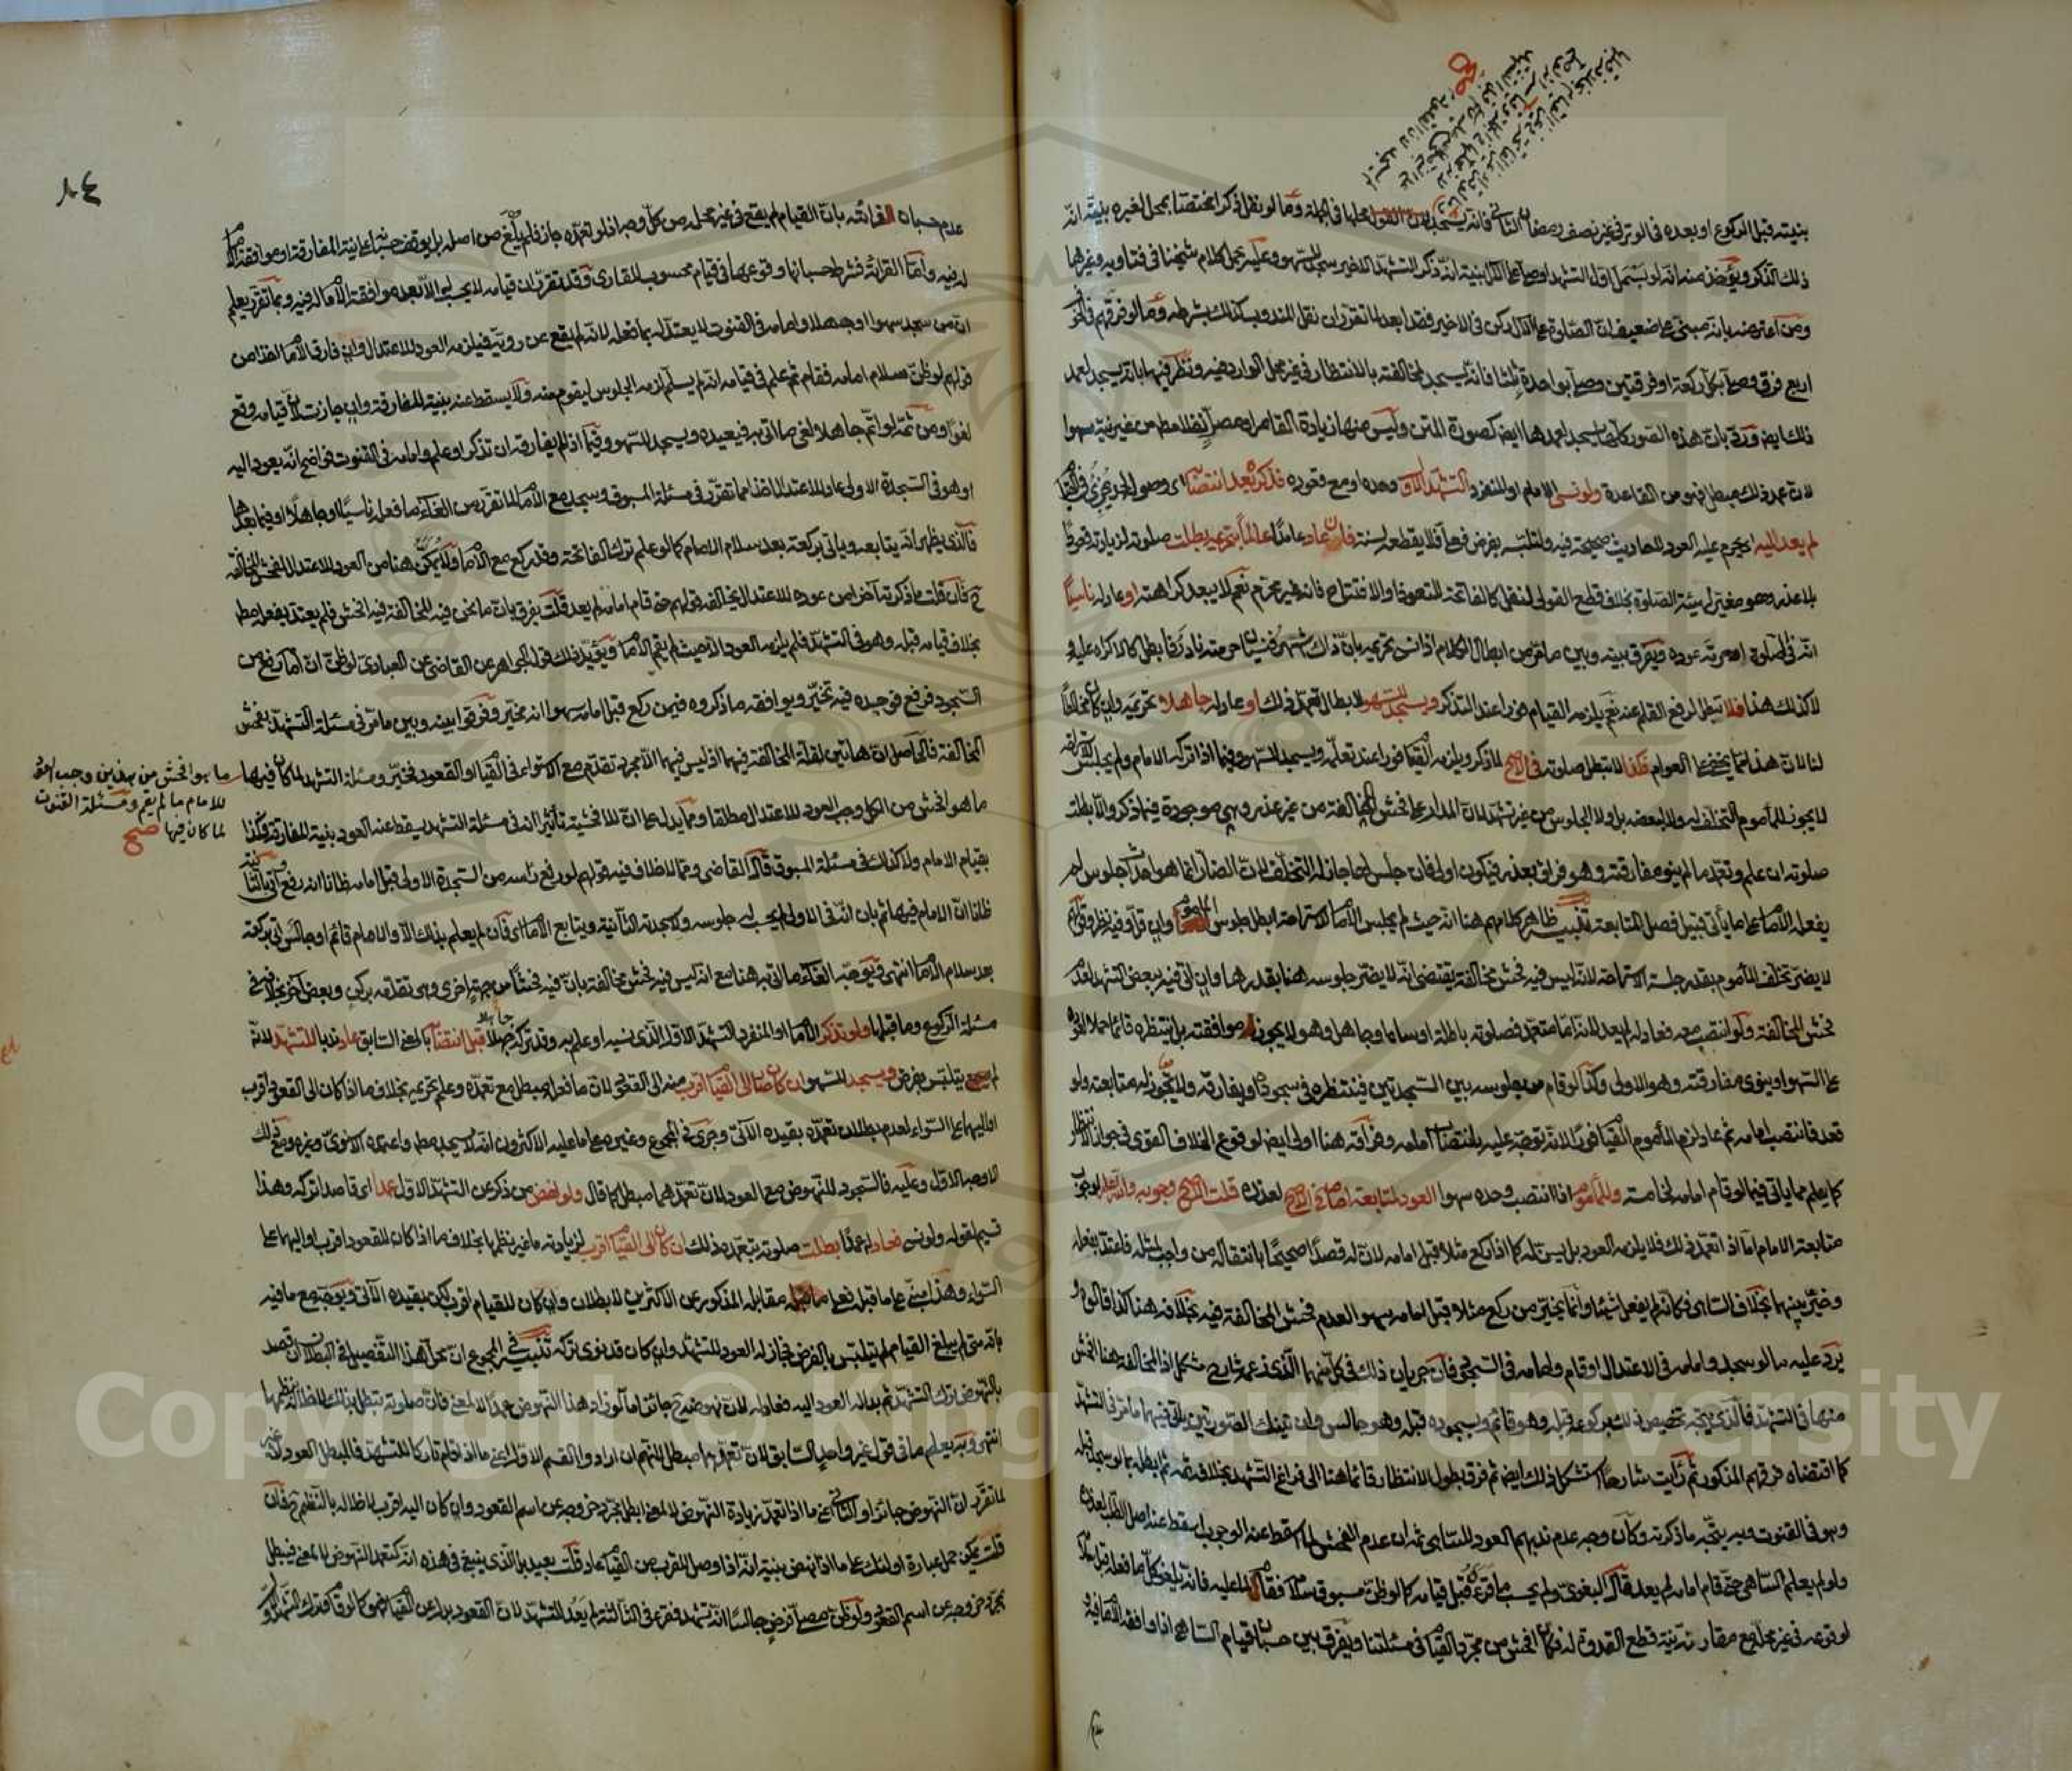 بنيته قبل الركوع او بعده في الوتر في غير نصف رمضان الثاني فانه يسجد
ذلك الذكر ويؤخذ منه انه لو بسمل اول التشهد او صلى على الآل بنية انه ذكر التشهد الاخير سجد للسهو وعليه يحمل كلام شيخنا في فتاويه وغيرها
ومن اعترضه بانه مبني على ضعيف ان الصلوة على الآل ركن في الاخير فقد ابعد لما تقرر ان نقل المندوب كذلك بشرطه وما لو فرقهم في الخوف
اربع فرق وصلى بكل ركعة او فرقتين وصلى بواحدة ثلثا فانه يسجد لمخالفته بالانتظار في غير محل الوارد فيه ونظر فيهما بانه يسجد لعمد
ذلك ايضا ورد بان هذه الصور كلها يسجد لعمدها ايضا كصورة المتن وليس منها زيادة القاصر او مصلي نفل مطلق من غير نية سهوا
لان عمد ذلك مبطل فهو من القاعدة ولو نسي الامام او المنفرد التشهد الاول وحده او مع قعوده فذكره بعد انتصابه اي وصوله لحد يجزئ في القيام
لم يعد اليه اي يحرم عليه العود لاحاديث صحيحة فيه ولتلبسه بفرض فعلي فلا يقطعه لسنة فان عاد عامدا عالما بتحريمه بطلت صلوته لزيادته قعودا
بلا عذر وهو مغير لهيئة الصلوة بخلاف قطع القولي لنفل كالفاتحة للتعوذ او الافتتاح فانه غير محرم نعم لا يبعد كراهته او عاد له ناسيا
انه في الصلوة او حرمة عوده ويفرق بينه وبين ما مر من ابطال الكلام اذا نسي تحريمه بان ذاك اشهر فنسيان حرمته نادر فابطل كالاكراه عليه و
لا كذلك هذا فلا تبطل لرفع القلم عنه نعم يلزمه القيام فورا عند التذكر ويسجد للسهو لابطال تعمد ذلك او عاد له جاهلا تحريمه وان كان مخالطا
لنا لان هذا مما يخفى على العوام فكذا لا تبطل صلوته في الاصح لما ذكر ويلزمه القيام فورا عند تعلمه ويسجد للسهو وفيما اذا تركه الامام ولم يجلس للاستراحة
لا يجوز للمأموم التخلف له ولا لبعضه بل ولا الجلوس من غير تشهد لان المدار على فحش المخالفة من غير عذر وهي موجودة فيما ذكر والا بطلت
صلوته ان علم وتعمد ما لم ينو مفارقته وهو فراق بعذر فيكون اولى فان جلس لها جاز له التخلف لان الضار انما هو احداث جلوس لم
يفعله الامام على ما يأتي قبيل فصل المتابعة تنبيه ظاهر كلامهم هنا انه حيث لم يجلس الامام للاستراحة ابطل جلوس المأموم وان قل وفيه نظر وقولهم
لا يضر تخلف المأموم بقدر جلسة الاستراحة لانه ليس فيه فحش مخالفة يقتضي انه لا يضر جلوسه هنا بقدرها وان اتى فيه ببعض التشهد لعدم
فحش المخالفة ولو انتصب معه فعاد له لم يعد لانه اما متعمد فصلوته باطلة او ساه او جاهل وهو لا يجوز موافقته بل ينتظره قائما حملا لعوده
على السهو او ينوي مفارقته وهو الاولى وكذا لو قام من جلوسه بين السجدتين فينتظره في سجوده او يفارقه ولا يجوز له متابعته ولو
قعد فانتصب امامه ثم عاد لزم المأموم القيام فورا لانه توجه عليه بانتصاب امامه وفراقه هنا اولى ايضا لوقوع الخلاف القوي في جواز الانتظار
كما يعلم مما يأتي فيما لو قام امامه لخامسة وللمأموم اذا انتصب وحده سهوا العود لمتابعة امامه في الاصح لعذره قلت الاصح وجوبه والله اعلم لوجوب
متابعة الامام اما اذا تعمد ذلك فلا يلزمه العود بل يسن له كما اذا ركع مثلا قبل امامه لان له قصدا صحيحا بانتقاله من واجب لمثله فاعتد بفعله
وخير بينهما بخلاف الساهي فكانه لم يفعل شيئا وانما يخير من ركع مثلا قبل امامه سهوا لعدم فحش المخالفة فيه بخلافه هنا كذا قالوه و
يرد عليه ما لو سجد وامامه في الاعتدال او قام وامامه في السجود فان جريان ذلك في كل منهما الذي زعمه شارح مشكل اذ المخالفة هنا افحش
منها في التشهد فالذي يتجه تخصيص ذلك بركوعه قبله وهو قائم وبسجوده قبله وهو جالس وان تينك الصورتين يأتي فيهما ما مر في التشهد
كما اقتضاه فرقهم المذكور ثم رأيت شارحا استشكل ذلك ايضا ثم فرق بطول الانتظار قائما هنا الى فراغ التشهد بخلافه ثمه ثم ابطله بما لو سجد قبله
وهو في القنوت وبه يتجه ما ذكرته وكأن وجه عدم ندبهم العود للساهي ثم ان عدم الفحش لما اسقط عنه الوجوب اسقط عنه اصل الطلب لعذره
ولو لم يعلم الساهي حتى قام امامه لم يعد قال البغوي ولم يحسب ما قرأه قبل قيامه كما لو ظن مسبوق سلام فقام لما عليه فانه يلغو كل ما فعله قبل سلامه
لوقوعه في غير محله مع مقارنة نية قطع القدوة له فكان افحش من مجرد القيام في مسئلتنا ويفرق بين حسبان قيام الساهي اذا وافقه الامام فيه و
٨٤
عدم حسبان القرائة بان القيام لم يقع في غير محله من كل وجه اذ لو تعمده جاز فلم يلغ من اصله بل يوقف حسبانه على نية المفارقة او موافقة الامام
له فيه واما القرائة فشرط حسبانها وقوعها في قيام محسوب للقارئ وقد تقرر ان قيامه لا يحسب له الا بعد موافقة الامام له فيه وبما تقرر يعلم
ان من سجد سهوا او جهلا وامامه في القنوت لا يعتد له بما فعله لانه لم يقع عن روية فيلزمه العود للاعتدال وان فارق الامام اخذا من
قولهم لو ظن سلام امامه فقام ثم علم في قيامه انه لم يسلم لزمه الجلوس ليقوم منه ولا يسقط عنه بنية المفارقة وان جازت لان قيامه وقع
لغوا ومن ثمه لو اتم جاهلا لغى ما اتى به فيعيده ويسجد للسهو وفيما اذا لم يفارقه ان تذكر او علم وامامه في القنوت فواضح انه يعود اليه
او هو في السجدة الاولى عاد للاعتدال اخذا مما تقرر في مسئلة المسبوق وسجد مع الامام لما تقرر من الغاء ما فعله ناسيا او جاهلا او فيما بعدها
فالذي يظهر انه يتابعه ويأتي بركعة بعد سلام الامام كما لو علم ترك الفاتحة وقد ركع مع الامام ولا يمكن هنا من العود للاعتدال لفحش المخالفة
ح فان قلت ما ذكرته آخرا من عوده للاعتدال يخالفه قولهم حتى قام امامه لم يعد قلت يفرق بان ما نحن فيه المخالفة فيه افحش فلم يعتد بفعله مطلقا
بخلاف قيامه قبله وهو في التشهد فلم يلزمه العود الا حيث لم يقم الامام ويؤيد ذلك قول الجواهر عن القاضي عن العبادي لو ظن ان امامه رفع من
السجود فرفع فوجده فيه تخير ويوافقه ما ذكروه فيمن ركع قبل امامه سهوا انه يتخير وفرقوا بينه وبين ما مر في مسئلة التشهد بفحش
المخالفة فالحاصل ان هاتين لقلة المخالفة فيهما اذ ليس فيهما الا مجرد تقدم مع الاستواء في القيام او القعود تخير ومسئلة التشهد لما كان فيها
ما هو افحش من هذين وجب العود
للامام ما لم يقم ومسئلة القنوت
لما كان فيها صح
ما هو افحش من الكل وجب العود للاعتدال مطلقا ومما يدل على ان للافحشية تأثيرا انه في مسئلة التشهد يسقط عنه العود بنية المفارقة فكذا
بقيام الامام ولا كذلك في مسئلة المسبوق قال القاضي ومما لا خلاف فيه قولهم لو رفع رأسه من السجدة الاولى قبل امامه ظانا انه رفع واتى بالثانية
ظانا ان الامام فيها ثم بان انه في الاولى لم يحسب له جلوسه ولا سجدته الثانية ويتابع الامام اي فان لم يعلم بذلك الا والامام قائم او جالس اتى بركعة
بعد سلام الامام انتهى ويوجه الغاء ما اتى به هنا مع انه ليس فيه فحش مخالفة بان فيه فحشا من جهة اخرى وهي تقدمه بركن وبعض آخر بخلافه في
مسئلة الركوع وما قبلها ولو تذكر الامام او المنفرد التشهد الاول الذي نسيه او علم به وقد تركه جهلا قبل انتصابه بالمعنى السابق عاد ندبا للتشهد لانه
لم يتلبس بفرض ويسجد للسهو ان كان صار الى القيام اقرب منه الى القعود لان ما فعله مبطل مع تعمده وعلم تحريمه بخلاف ما اذا كان الى القعود اقرب
او اليهما على السواء لعدم بطلان تعمده بقيده الآتي وجرى في المجموع وغيره على ما عليه الاكثرون انه لا يسجد مطلقا واعتمده الاسنوي وغيره ومع ذلك
الاوجه الاول وعليه فالسجود للنهوض مع العود لان تعمدهما مبطل كما قال ولو نهض من ذكر عن التشهد الاول عمدا اي قاصدا تركه وهذا
قسيم لقوله ولو نسي فعاد له عمدا بطلت صلوته بتعمده ذلك ان كان الى القيام اقرب لزيادته ما غير نظمها بخلاف ما اذا كان للقعود اقرب او اليهما على
السواء وهذا مبني على ما قبله مقابله المذكور عن الاكثرين لا بطلان وان كان للقيام اقرب لكن بقيده الآتي ويوجه مع ما فيه
بانه متى لم يبلغ القيام لم يتلبس بالفرض فجاز له العود للتشهد وان كان قد نوى تركه تنبيه في المجموع ان محل هذا التفصيل في البطلان ان قصد
بالنهوض ترك التشهد ثم بدا له العود اليه فعاد له لان نهوضه ح جائز اما لو زاد هذا النهوض عمدا لا لمعنى فان صلوته تبطل بذلك لاخلاله بنظمها
انتهى وبه يعلم ما في قول غير واحد السابق لان تعمدهما مبطل لانهم ان ارادوا القسم الاول اعني ما اذا قام تاركا للتشهد فالمبطل العود لا غير
لما تقرر ان النهوض جائز او الثاني اعني ما اذا تعمد زيادة النهوض لا لمعنى ابطل مجرد خروجه عن اسم القعود وان كان اليه اقرب لاخلاله بالنظم ح فان
قلت يمكن حمل عبارة اولئك على ما اذا نهض بنية انه اذا وصل للقرب من القيام عاد قلت بعيد بل الذي ينبغي في هذه انه كتعمد النهوض لا لمعنى فيبطل
بمجرد خروجه عن اسم القعود ولو ظن مصلي فرض جالسا انه تشهد فقرء في الثالثة لم يعد للتشهد لان القعود بدل عن القيام فهو كما لو قام وترك التشهد الاول